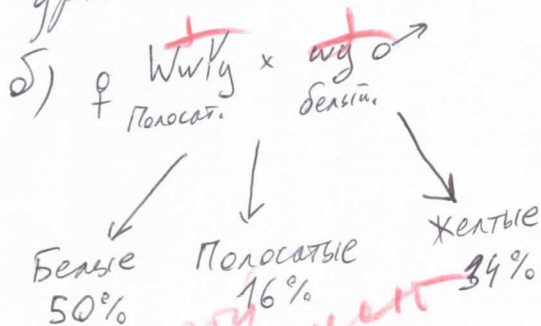 б) ♀ WwYy × wy ♂
Полосат. белый.
Белые Полосатые Желтые
50% 16% 34%